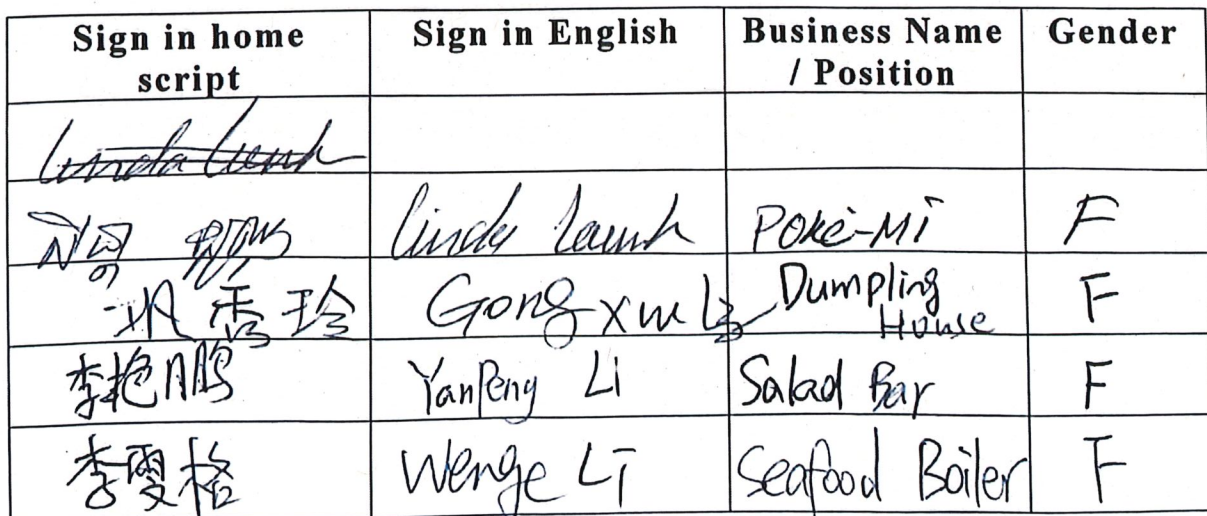 Sign in home script Sign in English Business Name / Position Gender
Linda
Linda POKÉ-MI F
秀珍 Gong Dumpling House F
李艳鹏 YanPeng Li Salad Bar F
李雯格 Wenge Li Seafood Boiler F